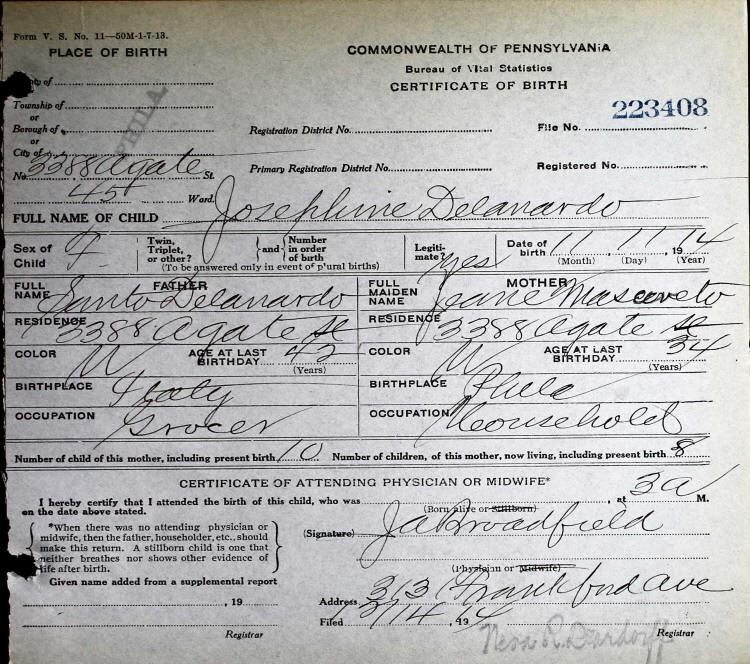 Form V. S. No. 11—50M-1-7-13.
PLACE OF BIRTH
COMMONWEALTH OF PENNSYLVANIA
Bureau of Vital Statistics
CERTIFICATE OF BIRTH
County of
Township of
PHILA
or
Borough of
Registration District No.
File No. 223408
or
City of
No. 3388 Agate St.
Primary Registration District No.
Registered No.
45 Ward
FULL NAME OF CHILD Josephine Delanardo
Sex of Child F
Twin, Triplet, or other? and Number in order of birth
(To be answered only in event of plural births)
Legitimate? yes
Date of birth 11 11 1914
(Month) (Day) (Year)
FATHER
FULL NAME Santo Delanardo
MOTHER
FULL MAIDEN NAME Jeane
RESIDENCE 3388 Agate St
RESIDENCE 3388 Agate St
COLOR W AGE AT LAST BIRTHDAY 42 (Years)
COLOR W AGE AT LAST BIRTHDAY 34 (Years)
BIRTHPLACE Italy
BIRTHPLACE Phila
OCCUPATION Grocer
OCCUPATION Household
Number of child of this mother, including present birth 10 Number of children, of this mother, now living, including present birth 8
CERTIFICATE OF ATTENDING PHYSICIAN OR MIDWIFE*
I hereby certify that I attended the birth of this child, who was at 3 a M.
on the date above stated. (Born alive or Stillborn)
*When there was no attending physician or
midwife, then the father, householder, etc., should
make this return. A stillborn child is one that
neither breathes nor shows other evidence of
life after birth.
(Signature) J a Broadfield
(Physician or Midwife)
Given name added from a supplemental report
, 19
Address Frankford Ave
Filed , 19
Registrar
Registrar